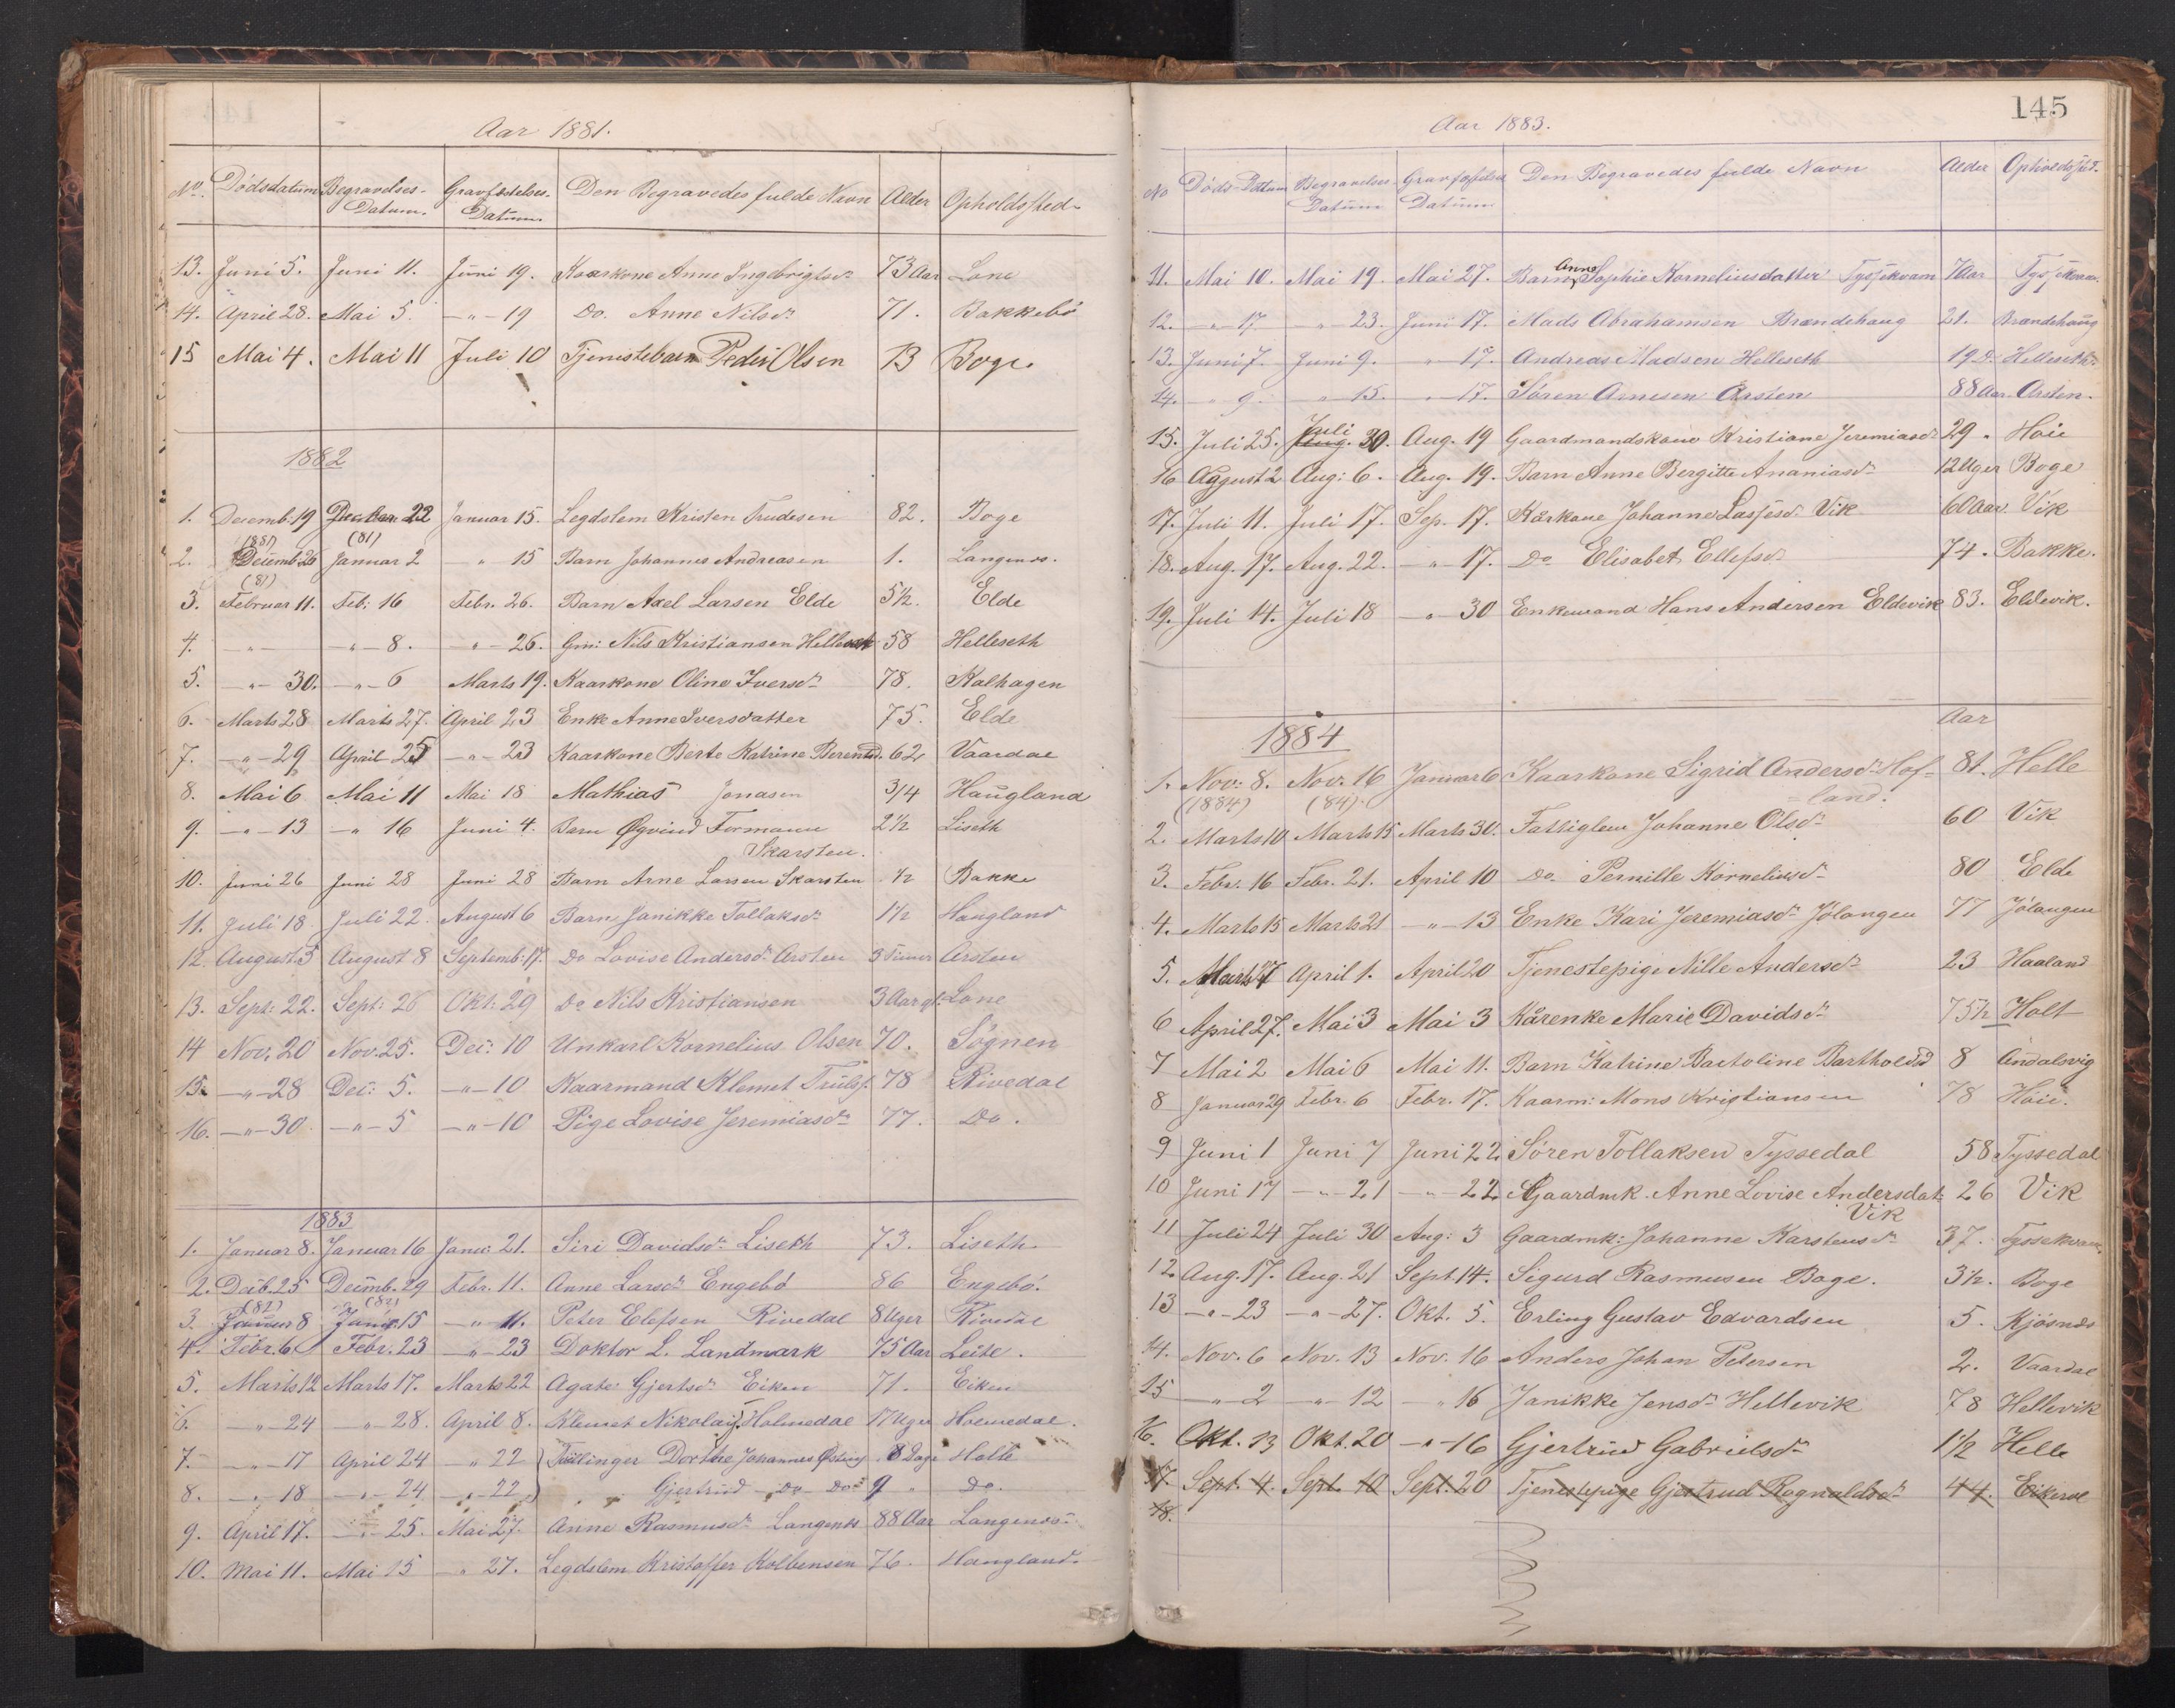 Aar 1881.
No. Dödsdatum Begravelses-Datum. Gravfæstelses-Datum. Den Begravedes fulde Navn Alder Opholdssted
13. Juni 5. Juni 11. Juni 19. Kaarkone Anne Ingebrigtsdr 73 Aar Lone
14. April 28. Mai 5. -"- 19 Do. Anne Nilsdr 71. Bakkebö
15 Mai 4. Mai 11 Juli 10 Tjenistebarn Peder Olsen 13 Boge.
1882
1. Decemb. 19 (1881) December 22 (81) Januar 15. Legdslem Kristen Trudesen 82. Boge
2. Decemb. 26 (81) Januar 2 " 15 Barn Johannes Andreasen 1. Langenes.
3. Februar 11. Feb: 16 Febr. 26. Barn Axel Larsen Elde 5½. Elde
4. -"- -"- 8. -"- 26. Gm: Nils Kristiansen Helleseth 58 Helleseth
5. -"- 30. -"- 6 Marts 19. Kaarkone Oline Iversdr 78. Kalhagen
6. Marts 28 Marts 27. April 23 Enke Anne Iversdatter 75. Elde
7. -"- 29 April 25 -"- 23 Kaarkone Berte Katrine Berentsd. 62 Vaardal
8. Mai 6 Mai 11 Mai 18 Mathias Jonasen 3/4 Haugland
9. -"- 13 -"- 16 Juni 4. Barn Øyvind Formann Skarsten. 2½ Liseth
10. Juni 26 Juni 28 Juni 28 Barn Arne Larsen Skarsten ½ Bakke
11. Juli 18 Juli 22. August 6 Barn Janikke Tollaksdr 1½ Haugland
12. August 5 August 8 Septemb: 17. Do Lovise Andersdr Arsten 3 Timer Arsten
13. Sept: 22. Sept: 26 Okt: 29 Do Nils Kristiansen 3 Aar gl. Lone
14 Nov. 20 Nov. 25. Dec: 10 Unkarl Kornelius Olsen 70. Sögnen
15. -"- 28 Dec: 5. -"- 10 Kaarmand Klemet Trulss. 78 Rivedal
16. -"- 30. -"- 5 -"- 10 Pige Lovise Jeremiasdr 77. Do.
1883
1. Januar 8. Januar 16 Janu: 21. Siri Davidsdr Liseth 73. Liseth
2. Decb. 25 (82) Decemb. 29 (82) Febr. 11. Anne Larsdr Engebö 86 Engebö.
3. Januar 8 Januar 15 -"- 11. Peter Elefsen Rivedal 8 Uger Rivedal
4. Febr. 6 Febr. 23 -"- 23 Doktor L. Landmark 75 Aar Leite.
5. Marts 12 Marts 17. Marts 22 Agate Gjertsdr Eiken 71. Eiken
6. -"- 24 -"- 28. April 8. Klemet Nikolaij. Holmedal 17 Uger Holmedal.
7. -"- 17 April 24 -"- 22 Tvillinger Dorthe Johannes 8 Dage Holte
8. -"- 18 -"- 24 -"- 22 Gjertrud Do Do 9 " Do.
9. April 17. -"- 25. Mai 27. Anne Rasmusdr Langenes 88 Aar Langenes
10. Mai 11. Mai 15 -"- 27. Legdslem Kristoffer Kolbensen 76. Haugland.
145
Aar 1883.
No Döds-Datum Begravelses-Datum Gravfæstelses Datum. Den Begravedes fulde Navn Alder Opholdssted.
11. Mai 10. Mai 19. Mai 27. Barn Anne Sophie Korneliusdatter Tyssekvam 7 Aar Tyssekvam.
12. -"- 17. " 23. Juni 17. Mads Abrahamsen Brændehaug 21. Brændehaug
13. Juni 7. Juni 9. " 17. Andreas Madsen Helleseth 19 D. Helleseth
14. " 9. " 15. " 17. Sören Arnesen Arsten 88 Aar. Arsten.
15. Juli 25. Aug. Juli 30. Aug. 19 Gaardmandskone Kristiane Jeremiasdr 29 " Höie
16 August 2 Aug: 6. Aug. 19. Barn Anne Bergitte Ananiasdr 12 Uger Boge
17. Juli 11. Juli 17. Sep. 17. Kårkone Johanne Lassesd. Vik 60 Aar. Vik
18. Aug. 17. Aug. 22. -"- 17. Do Elisabet Ellefsdr 74. Bakke.
19. Juli 14. Juli 18 -"- 30 Enkemand Hans Andersen Eldevik 83. Eldevik.
1884 Aar
1. Nov: 8. (1884) Nov. 16 (84). Januar 6 Kaarkone Sigrid Andersdr Hof=land. 81. Helle
2. Marts 10 Marts 15 Marts 30. Fattiglem Johanne Olsdr 60 Vik
3. Febr. 16 Febr. 21. April 10 Do Pernille Korneliusdr 80 Elde
4. Marts 15 Marts 21 -"- 13 Enke Kari Jeremiasdr Jölangen 77 Jölangen
5. Marts 27 April 1. April 20 Tjenestepige Nille Andersdr 23 Haaland
6 April 27. Mai 3 Mai 3 Kårenke Marie Davidsdr 75½ Holt
7 Mai 2 Mai 6 Mai 11. Barn Katrine Bartoline Bartholdsd 8 Andalsvig
8 Januar 29 Febr. 6 Febr. 17. Kaarm: Mons Kristiansen 78 Höie.
9 Juni 1 Juni 7 Juni 22 Sören Tollaksen Tyssedal 58 Tyssedal
10 Juni 17 -"- 21 -"- 22 Gaardmk. Anne Lovise Andersdat: Vik 26 Vik
11 Juli 24 Juli 30 Aug: 3 Gaardmk: Johanne Karstensdr 37. Tyssekvam.
12 Aug. 17. Aug. 21 Sept. 14. Sigurd Rasmusen Boge. 3½. Boge
13 -"- 23 -"- 27. Okt. 5. Erling Gustav Edvardsen 5. Kjösnes
14. Nov. 6 Nov. 13 Nov. 16 Anders Johan Petersen 2. Vaardal
15 -"- 2 -"- 12 -"- 16 Janikke Jensdr Hellevik 78 Hellevik
16. Okt. 13 Okt. 20 -"- 16 Gjertrud Gabrielsdr 1½ Helle
17. Sept. 4. Sept. 10 Sept. 20 Tjenestepige Gjertrud Ragnaldsdr 44. Eikerol
18.